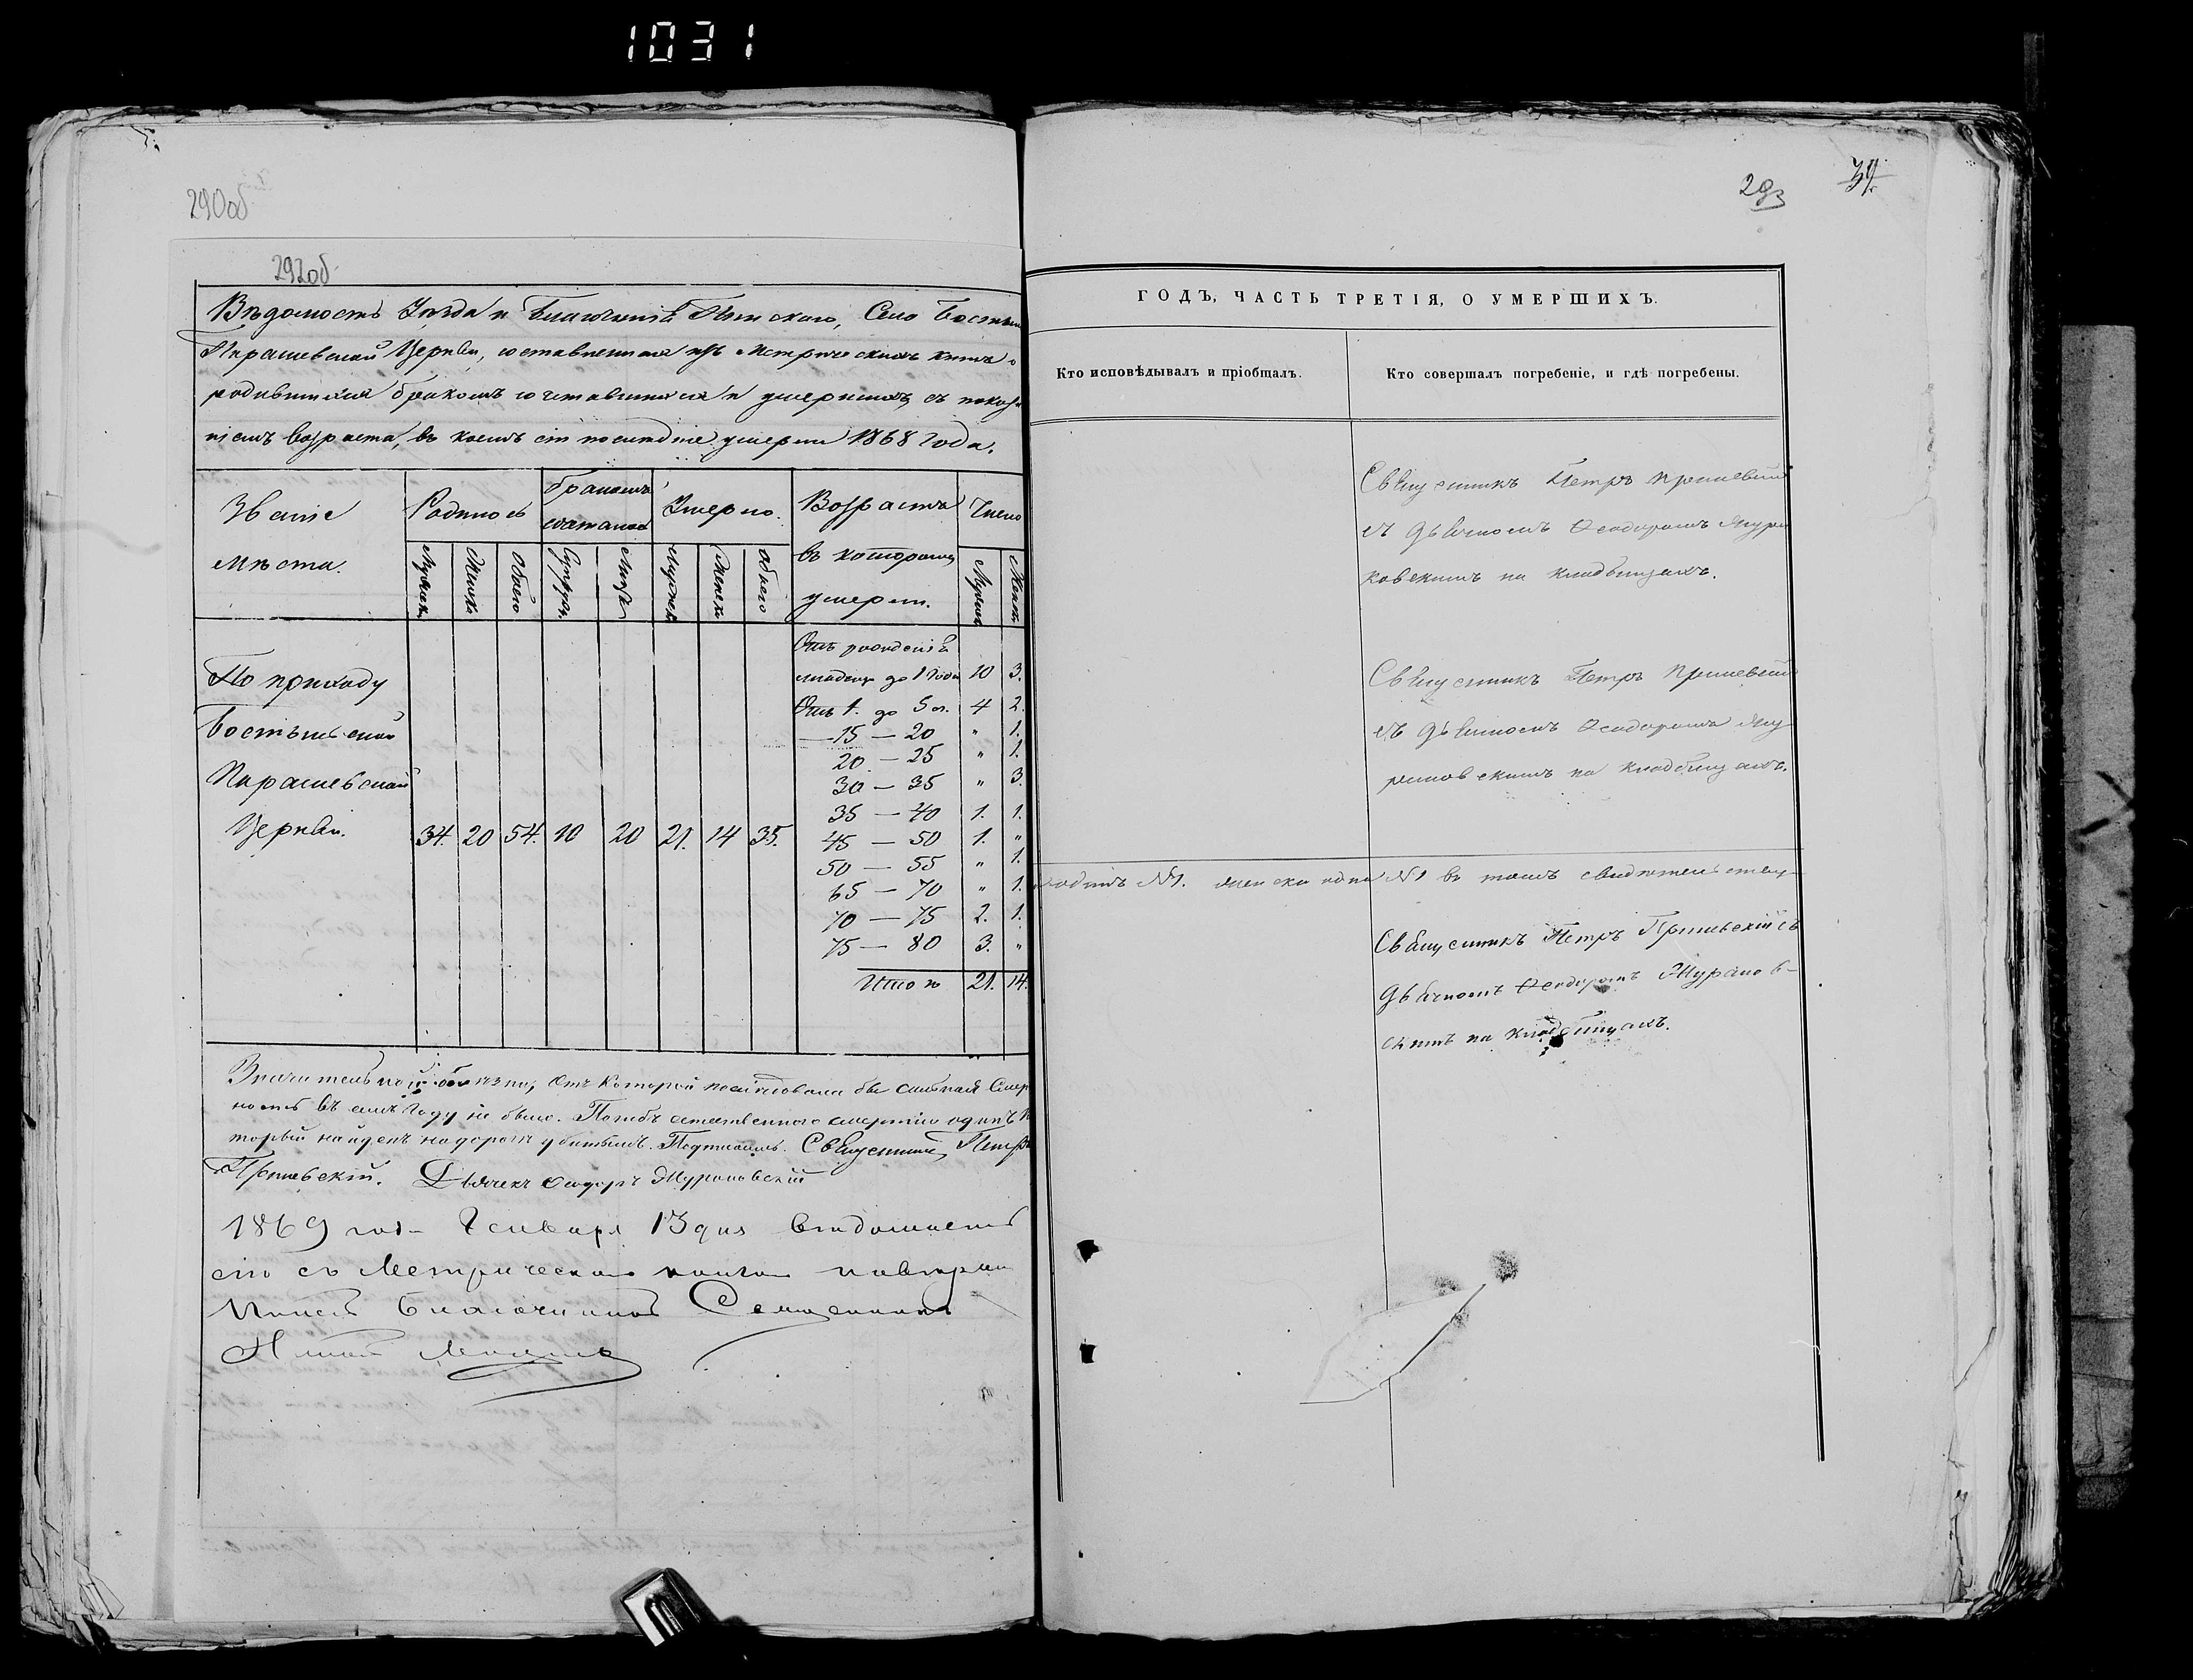 1031
290об
292об
Вѣдомость Уѣзда и Благочинія Пинскаго, Село
Парашевской Церкви, составленная изъ метрическихъ книгъ о
родившихся бракомъ сочетавшихся и умершихъ, съ показа
ніемъ возраста, въ коемъ сіи послѣдніе умерли 1868 года.
Званіе
мѣста.
Родилось
бракомъ
Умерло.
Возраста
въ котором
умерли.
Число
Мужеск
Женск
Обоего
Супруж.
Лицъ
Мужеск
Женск
обоего
Мужеск
Женск
По приходу
Парашевской
Церкви.
34. 20 54. 10 20 21. 14 35.
Отъ рожденія
младенц до 1 года 10 3.
Отъ 1. до 5 л. 4 2.
— 15 — 20 " 1.
20 — 25 " 1.
30 — 35 " 3.
35 — 40 1. 1.
45 — 50 1. "
50 — 55 " 1.
65 — 70 " 1.
70 — 75 2. 1.
75 — 80 3. "
Итого 21. 14.
Значительной болѣзни, отъ которой послѣдовала бы сильная Смер
ность въ семъ году не было.
торый найденъ на дорогѣ убитымъ. Подписалъ. Священникъ Петръ
Дьячекъ Ѳеодоръ Мурановскій
1869 года Января 13 дня вѣдомость
сію съ Метрическою книгою
Благочинный Священникъ
293
39.
ГОДЪ, ЧАСТЬ ТРЕТІЯ, О УМЕРШИХЪ.
Кто исповѣдывалъ и пріобщалъ.
Кто совершалъ погребеніе, и гдѣ погребены.
Священникъ Петръ
съ дьячкомъ Ѳеодоромъ Мура
новскимъ на кладбищахъ.
Священникъ Петръ
съ дьячкомъ Ѳеодоромъ Му
рановскимъ на кладбищахъ.
одинъ №1. женска одна №1 въ томъ свидѣтельству
Священникъ Петръ съ
дьячкомъ Ѳеодоромъ Муранов-
скимъ на кладбищахъ.